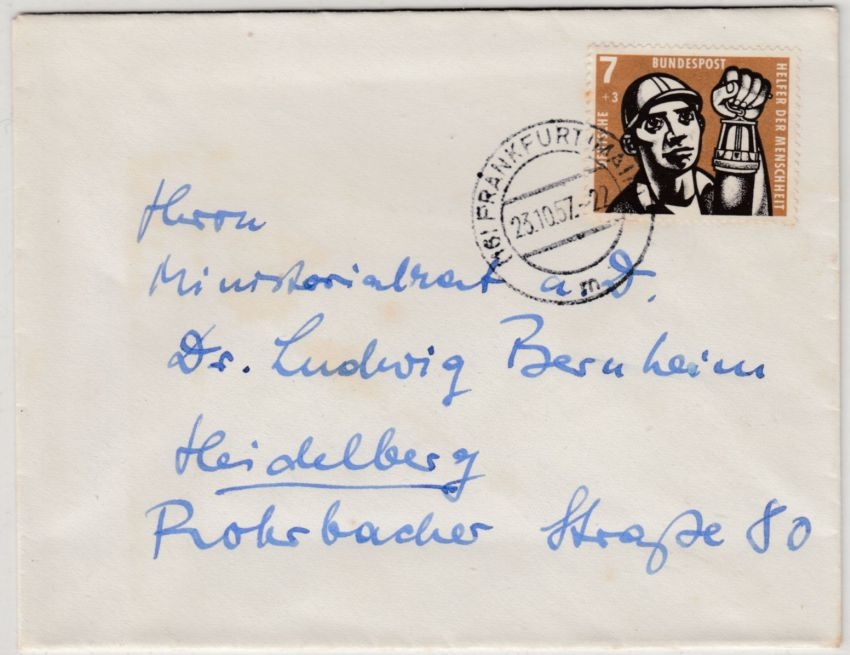 7
+3
DEUTSCHE
BUNDESPOST
HELFER DER MENSCHHEIT
(16) FRANKFURT (MAIN)
23.10.57.-22
m
Herrn
Ministerialrat a. D.
Dr. Ludwig Bernheim
Heidelberg
Rohrbacher Straße 80